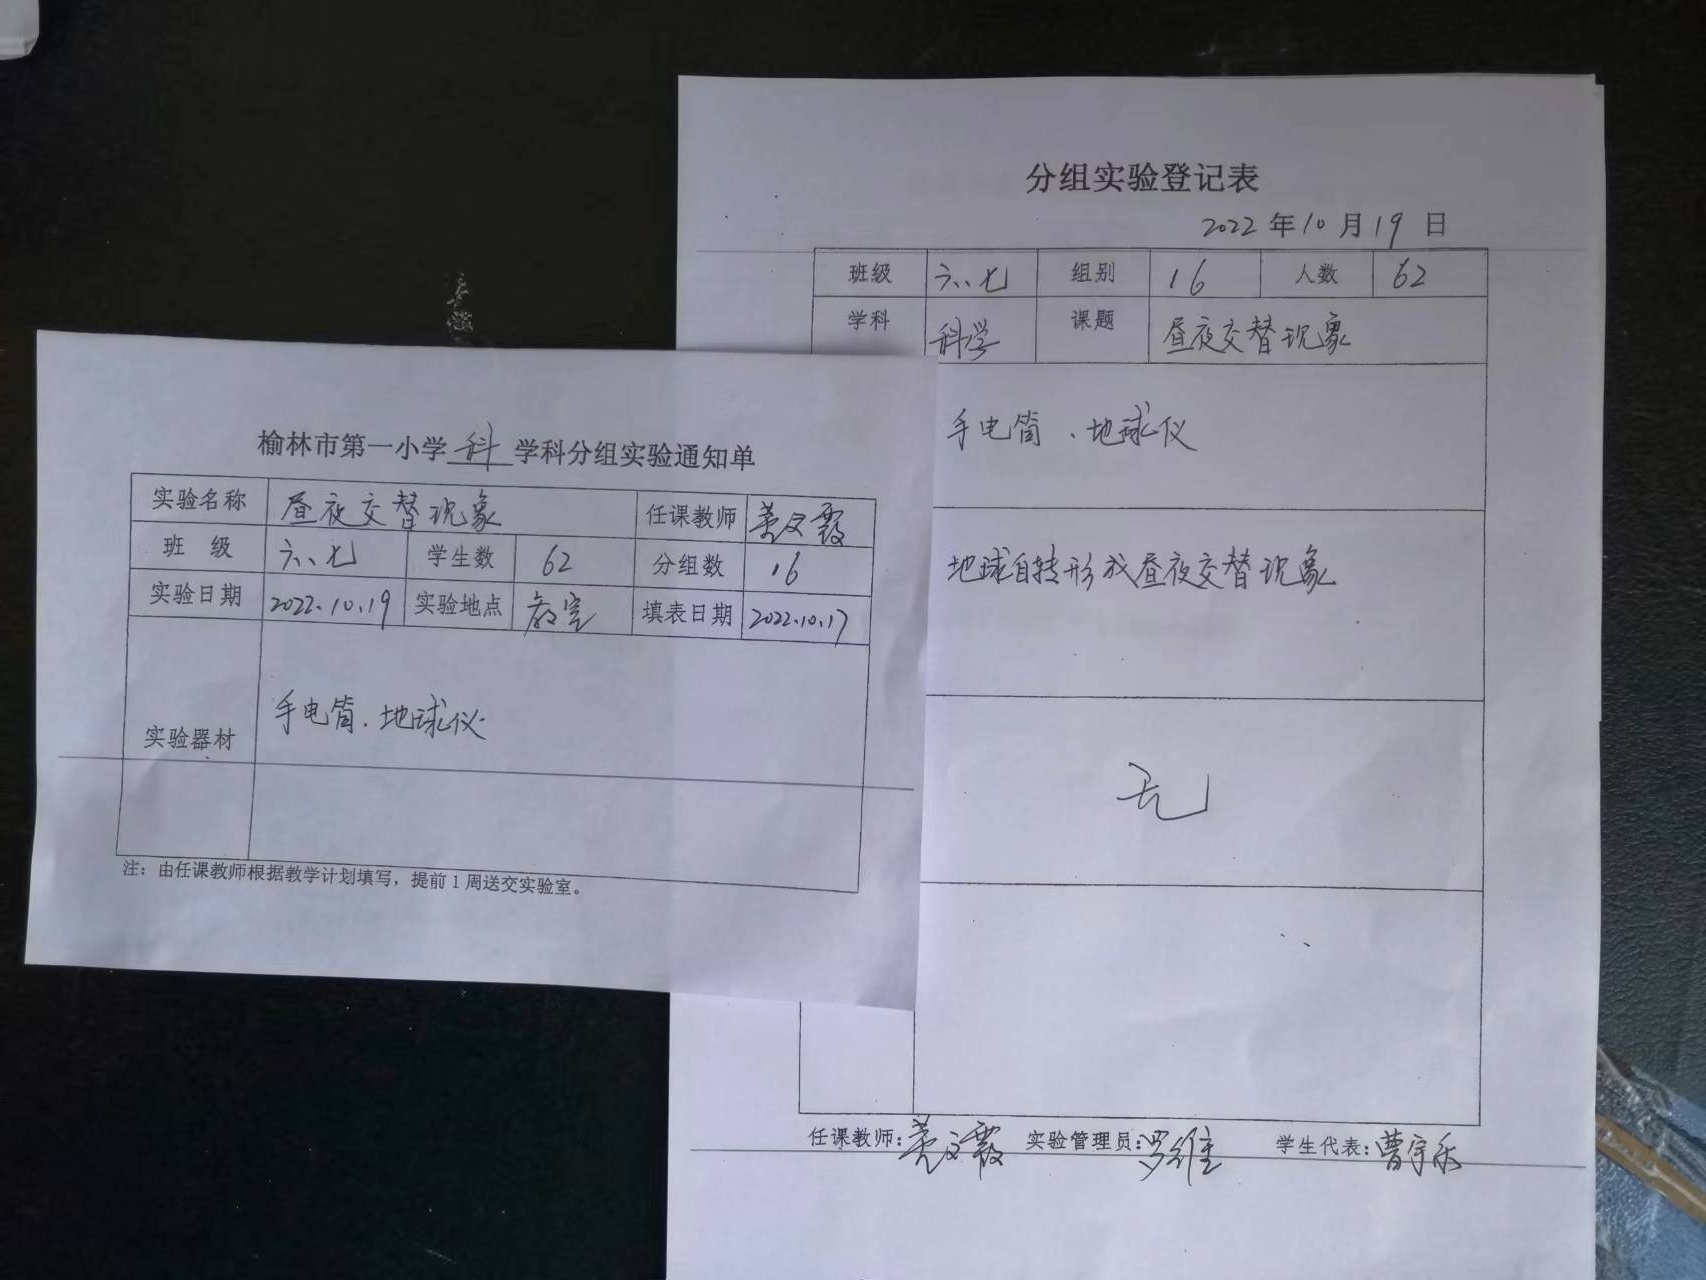 榆林市第一小学科学科分组实验通知单
实验名称 昼夜交替现象 任课教师 文霞
班级 六、七 学生数 62 分组数 16
实验日期 2022.10.19 实验地点 教室 填表日期 2022.10.17
实验器材 手电筒、地球仪
注：由任课教师根据教学计划填写，提前1周送交实验室。
分组实验登记表
2022年10月19日
班级 六、七 组别 16 人数 62
学科 科学 课题 昼夜交替现象
手电筒、地球仪
地球自转形成昼夜交替现象
无
任课教师：文霞 实验管理员：罗维 学生代表：曹宇乐